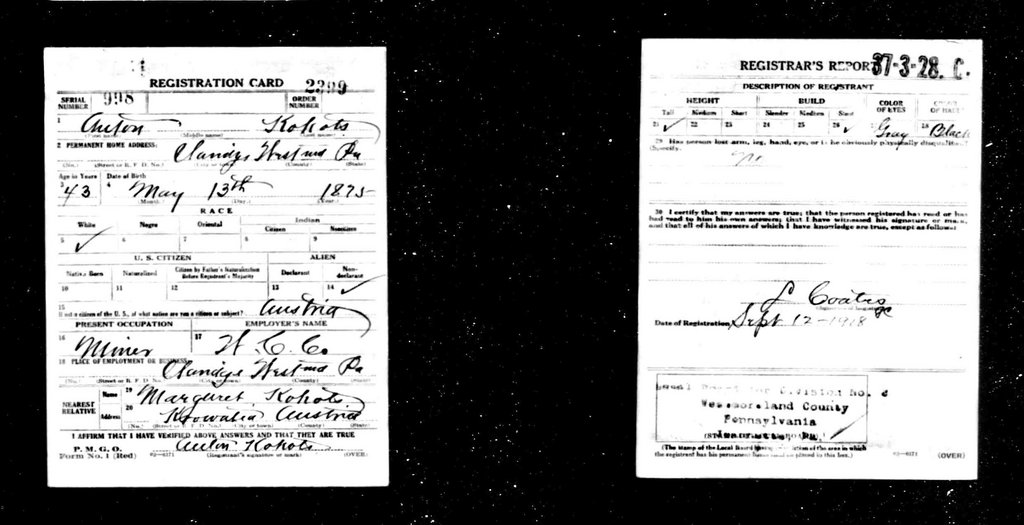 REGISTRATION CARD 2299
SERIAL NUMBER 998 ORDER NUMBER
1 Anton Kokots
(First name) (Middle name) (Last name)
2 PERMANENT HOME ADDRESS:
Claridge Westmd Pa
(No.) (Street or R. F. D. No.) (City or town) (County) (State)
Age in Years Date of Birth
3 43 4 May 13th 1875
(Month.) (Day.) (Year.)
RACE
White Negro Oriental Indian
Citizen Noncitizen
5 ✓ 6 7 8 9
U. S. CITIZEN ALIEN
Native Born Naturalized Citizen by Father's Naturalization Before Registrant's Majority Declarant Non-declarant
10 11 12 13 14 ✓
15 If not a citizen of the U. S., of what nation are you a citizen or subject? Austria
PRESENT OCCUPATION EMPLOYER'S NAME
16 Miner 17 W. C. Co.
18 PLACE OF EMPLOYMENT OR BUSINESS:
Claridge Westmd Pa
(No.) (Street or R. F. D. No.) (City or town) (County) (State)
NEAREST RELATIVE Name 19 Margaret Kokots
Address 20 Krowatia Austria
(No.) (Street or R. F. D. No.) (City or town) (County) (State)
I AFFIRM THAT I HAVE VERIFIED ABOVE ANSWERS AND THAT THEY ARE TRUE
P. M. G. O.
Form No. 1 (Red) 03—6171 Anton Kokots
(Registrant's signature or mark) (OVER)
REGISTRAR'S REPORT 37-3-28. C.
DESCRIPTION OF REGISTRANT
HEIGHT BUILD COLOR OF EYES COLOR OF HAIR
Tall Medium Short Slender Medium Stout
21 ✓ 22 23 24 25 26 ✓ 27 Gray 28 Black
29 Has person lost arm, leg, hand, eye, or is he obviously physically disqualified?
(Specify.) No
30 I certify that my answers are true; that the person registered has read or has had read to him his own answers; that I have witnessed his signature or mark, and that all of his answers of which I have knowledge are true, except as follows:
Coates
Date of Registration Sept 12-1918
Local Board for Division No.
Westmoreland County
Pennsylvania
Jeannette, Pa.
(The stamp of the Local Board having jurisdiction of the area in which the registrant has his permanent home shall be placed in this box.)
03—6171 (OVER)